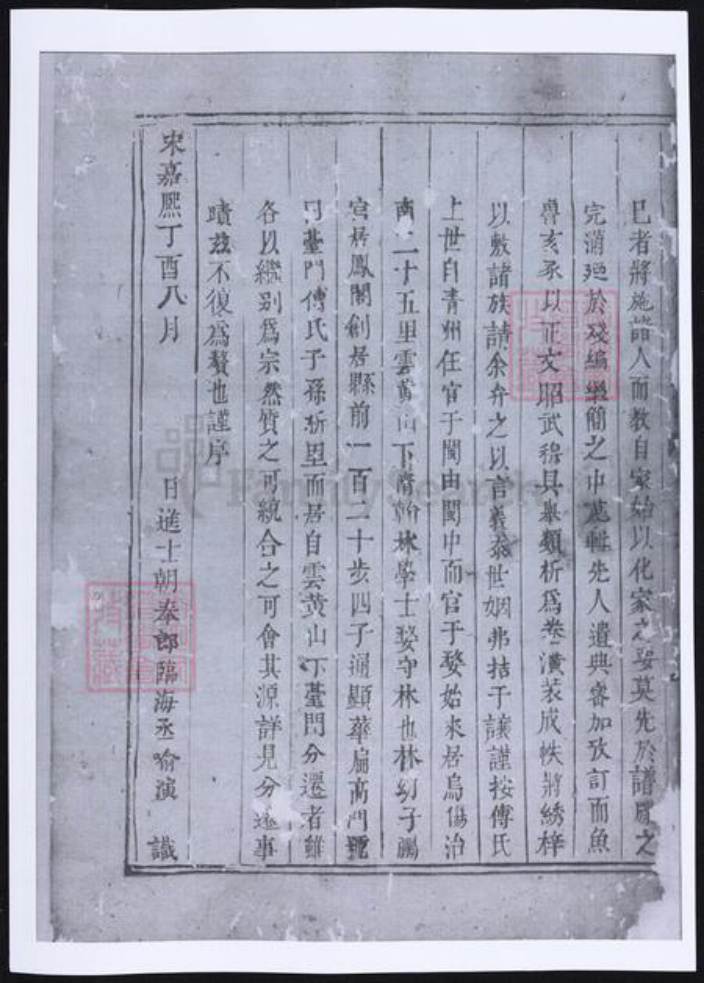 已者將施諸人而教自家始以化家之要莫先於譜牒之
完溺於殘編斷簡之中先人遺典審加攷訂而魚
魯亥豕以正文昭武穆具舉類析爲卷潢裝成帙將綉梓
以敷諸族請余弁之以言義忝世姻弗拮于讓謹按傅氏
上世自青州任官于閩由閩中而官于婺始來居烏傷治
南二十五里雲黄山下齊翰林學士婺守林也林幼子鵬
官居鳳閣創居縣前一百二十步四子通顯華扁高門號
曰臺門傅氏子孫析里而居自雲黄山下臺門分遷者雖
各以繼别爲宗然質之可統合之可會其源詳見分遷事
蹟茲不復爲贅也謹序
宋嘉熙丁酉八月 日進士朝奉郎臨海丞喻演 識
FamilySearch